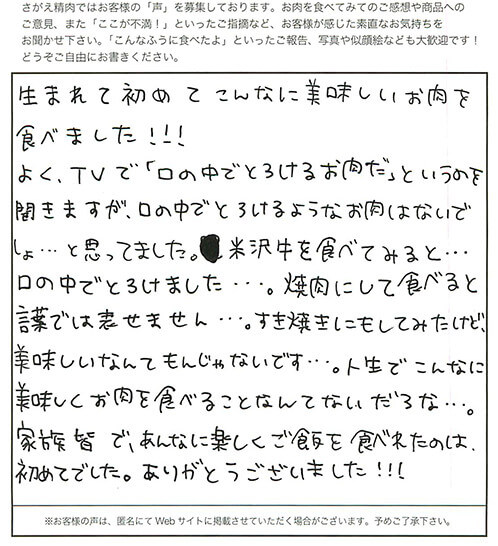 さがえ精肉ではお客様の「声」を募集しております。お肉を食べてみてのご感想や商品への
ご意見、また「ここが不満！」といったご指摘など、お客様が感じた素直なお気持ちを
お聞かせ下さい。「こんなふうに食べたよ」といったご報告、写真や似顔絵なども大歓迎です！
どうぞご自由にお書きください。
生まれて初めてこんなに美味しいお肉を
食べました!!!
よく、TVで「口の中でとろけるお肉だ」というのを
聞きますが、口の中でとろけるようなお肉はないで
しょ…と思ってました。米沢牛を食べてみると…
口の中でとろけました…。焼肉にして食べると
言葉では表せません…。すき焼きにもしてみたけど、
美味しいなんてもんじゃないです…。人生でこんなに
美味しくお肉を食べることなんてないだろな…。
家族皆で、あんなに楽しくご飯を食べれたのは、
初めてでした。ありがとうございました!!!
※お客様の声は、匿名にてWebサイトに掲載させていただく場合がございます。予めご了承下さい。